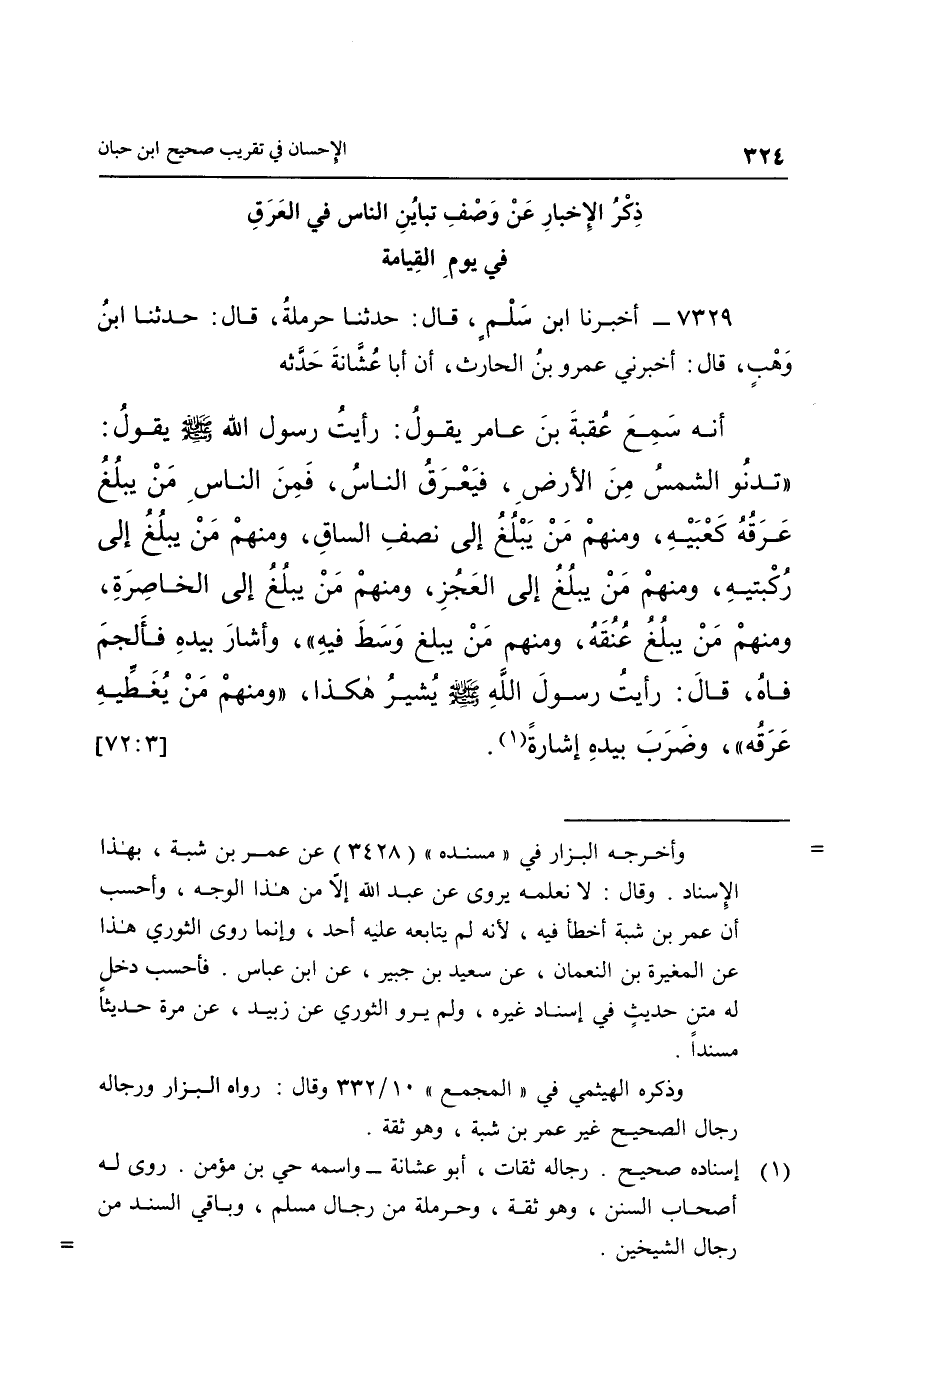 ٣٢٤ الإحسان في تقريب صحيح ابن حبان
ذِكْرُ الإِخبارِ عَنْ وَصْفِ تبايُنِ الناس في العَرَقِ
في يومِ القِيامة
٧٣٢٩ ــ أخبـرنا ابن سَلْمٍ، قـال: حدثنـا حرملةُ، قـال: حـدثنـا ابنُ
وَهْبٍ، قال: أخبرني عمرو بنُ الحارث، أن أبا عُشَّانةَ حَدَّثه
أنـه سَمِـعَ عُقبةَ بنَ عـامر يقـولُ: رأيتُ رسول الله ﷺ يقـولُ:
«تـدنُو الشمسُ مِنَ الأرضِ، فَيَعْـرَقُ النـاسُ، فَمِنَ النـاسِ مَنْ يبلُغُ
عَـرَقُهُ كَعْبَيْـهِ، ومنهمْ مَنْ يَبْلُغُ إلى نصفِ الساقِ، ومنهمْ مَنْ يبلُغُ إلى
رُكْبتيـهِ، ومنهمْ مَنْ يبلُغُ إلى العَجُزِ، ومنهمْ مَنْ يبلُغُ إلى الخـاصِرَةِ،
ومنهمْ مَنْ يبلُغُ عُنُقَهُ، ومنهم مَنْ يبلغ وَسَطَ فيهِ»، وأشارَ بيدهِ فـأَلجمَ
فـاهُ، قـالَ: رأيتُ رسـولَ اللَّهِ ﷺ يُشيـرُ هٰكـذا، «ومنهمْ مَنْ يُغَـطِّيـهِ
عَرَقُه»، وضَرَبَ بيدهِ إشارةً(١). [٣:٧٢]
= وأخـرجـه البـزار في «مسنده» (٣٤٢٨) عن عمـر بن شبـة، بهـٰذا
الإسناد. وقال: لا نعلمـه يروى عن عبـد الله إلاّ من هـٰذا الوجـه، وأحسب
أن عمر بن شبة أخطأ فيه، لأنه لم يتابعه عليه أحد، وإنما روى الثوري هـٰذا
عن المغيرة بن النعمان، عن سعيد بن جبير، عن ابن عباس. فأحسب دخل
له متن حديثٍ في إسنـاد غيره، ولم يـرو الثوري عن زبيـد، عن مرة حـديثاً
مسنداً.
وذكره الهيثمي في «المجمـع» ٣٣٢/١٠ وقال: رواه البـزار ورجاله
رجال الصحيـح غير عمر بن شبة، وهو ثقة.
(١) إسناده صحيح. رجاله ثقات، أبو عشانة ــ واسمه حي بن مؤمن. روى لـه
أصحـاب السنن، وهو ثقـة، وحـرملة من رجـال مسلم، وبـاقي السنـد من
رجال الشيخين. =